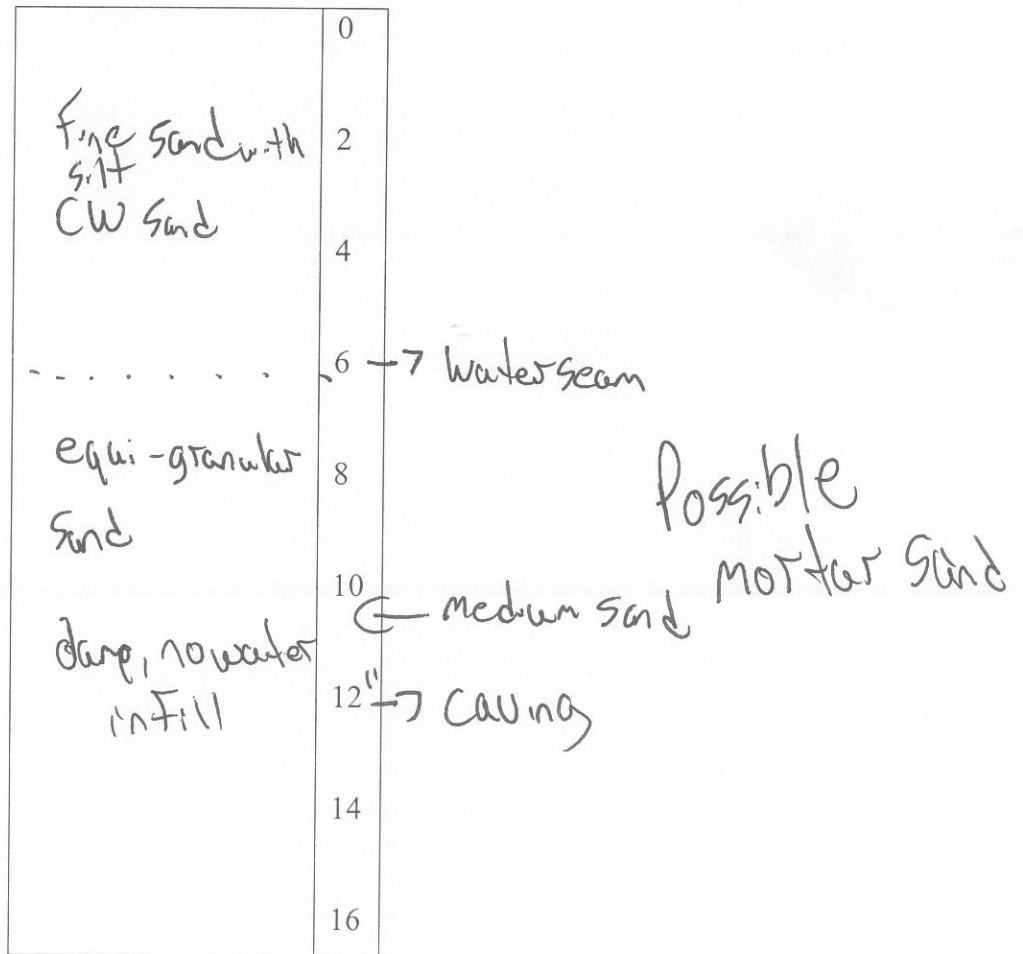 0
Fine Sand with
silt
2
CW Sand
4
6 → Water seam
equi-granular
8
Sand
Possible
mortar Sand
10
← medium sand
damp, no water
infill
12" → Caving
14
16